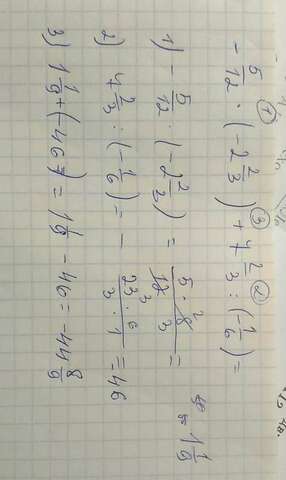 ① ③ ②
- 5/12 · (-2 2/3) + 7 2/3 : (1/6) =
1) - 5/12 · (-2 2/3) = 5 · 8 2 / 12 3 · 3 = 1 1/9
2) 7 2/3 : (-1/6) = - 23 · 6 / 3 · 1 = 46
3) 1 1/9 + (-46) = 1 1/9 - 46 = -44 8/9